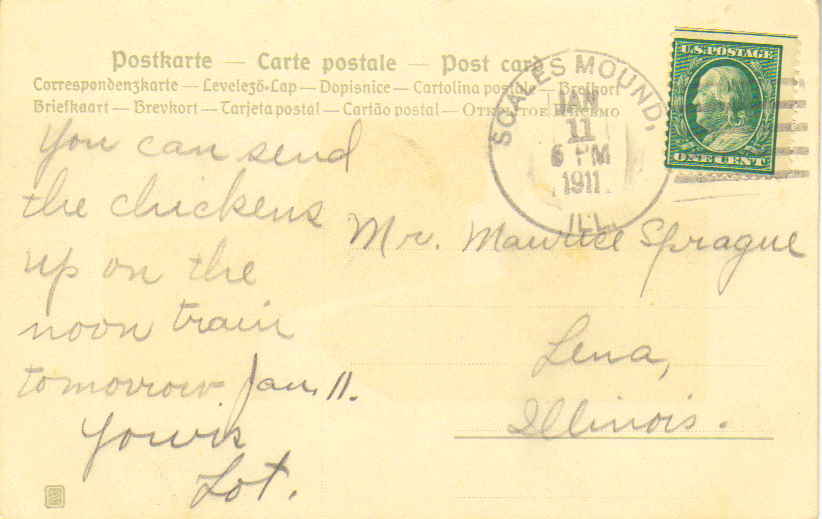 Postkarte — Carte postale — Post card
Correspondenzkarte — Levelező-Lap — Dopisnice — Cartolina postal — Brefkort
Briefkaart — Brevkort — Tarjeta postal — Cartão postal — Открытое письмо
SCALES MOUND,
JAN
11
6 PM
1911
ILL.
U.S. POSTAGE
ONE CENT
You can send
the chickens
up on the
noon train
tomorrow Jan. 11.
Yours
Lot.
Mr. Maurice Sprague
Lena,
Illinois.